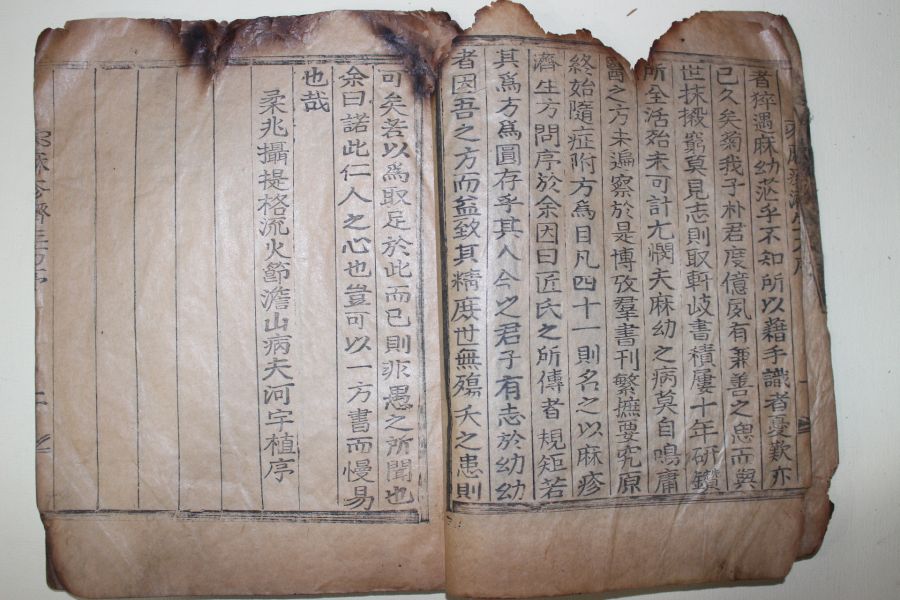 者猝遇麻幼茫乎不知所以藉手識者憂歎亦
已久矣菊我子朴君度億夙有兼善之思而與
世抹摋窮莫見志則取軒岐書積屢十年研鑽
所全活殆未可計尤憫夫麻幼之病莫自鳴庸
醫之方未遍察於是博攷羣書刊繁摭要究原
終始隨症附方爲目凡四十一則名之以麻疹
濟生方問序於余因曰匠氏之所傳者規矩若
其爲方爲圓存乎其人今之君子有志於幼幼
者因吾之方而益致其精庶世無殤夭之患則
可矣若以爲取足於此而已則非愚之所聞也
余曰諾此仁人之心也豈可以一方書而慢易
也哉
柔兆攝提格流火節澹山病夫河宇植序